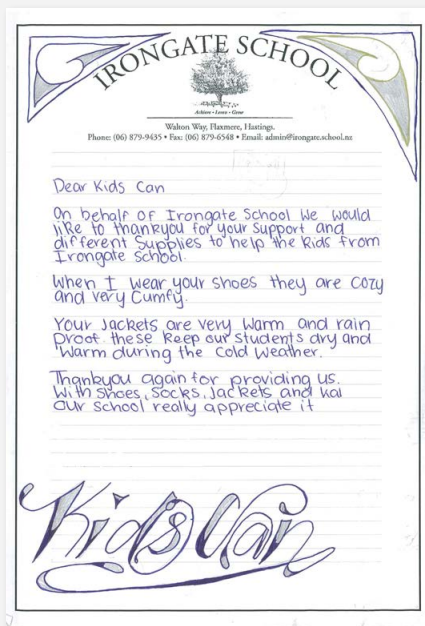 IRONGATE SCHOOL
Achieve • Learn • Grow
Walton Way, Flaxmere, Hastings.
Phone: (06) 879-9435 • Fax: (06) 879-6548 • Email: admin@irongate.school.nz
Dear Kids Can
On behalf of Irongate School We Would
like to thankyou for your Support and
different Supplies to help the kids from
Irongate School.
When I wear your shoes they are Cozy
and very Cumfy.
Your Jackets are very Warm and rain
Proof these keep our students dry and
Warm during the Cold Weather.
Thankyou again for providing us.
With Shoes, Socks, Jackets and kai
our school really appreciate it
Kid's Can